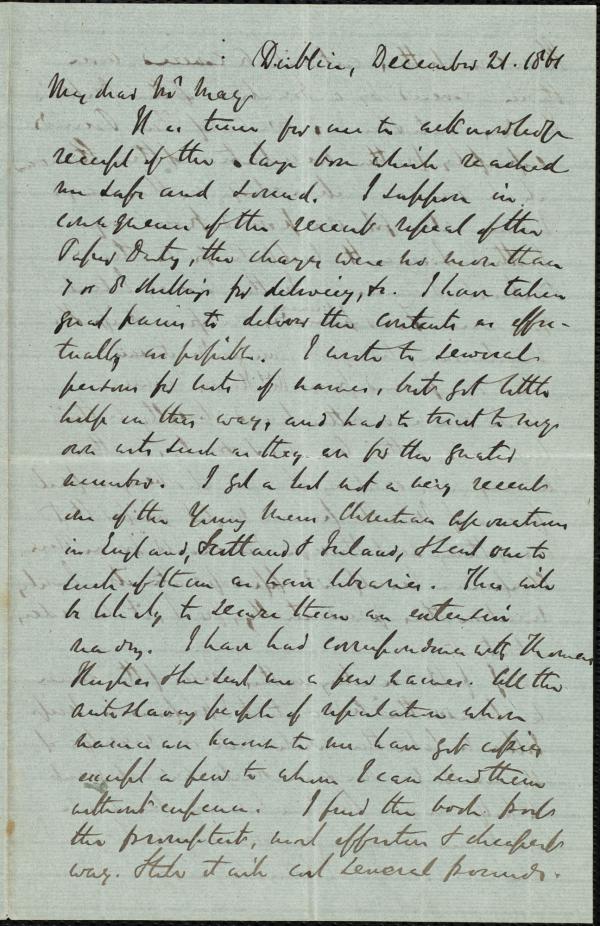 Dublin, December 21. 1861
My dear Mr May
It is time for me to acknowledge
receipt of the large box which reached
me safe and sound. I suppose in
consequence of the recent repeal of the
Paper Duty, the charges were no more than
7 or 8 shillings for delivery, &c. I have taken
great pains to deliver the contents as effec-
tually as possible. I wrote to several
persons for lists of names, but got little
help in this way, and had to trust to my
own wits such as they are for the greater
number. I got a list not a very recent
one of the Young Mens Christian Associations
in England, Scotland & Ireland, & sent one to
such of them as have libraries. This will
be likely to secure them an extensive
reading. I have had correspondence with Thomas
Hughes & he sent me a few names. All the
antislavery people of reputation whose
names are known to me have got copies
except a few to whom I can send them
without expense. I find the book post
the promptest, most effective & cheapest
way. Still it will cost several pounds.